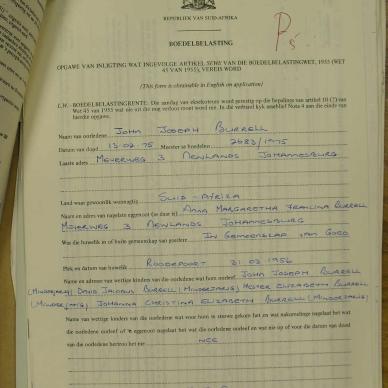 REPUBLIEK VAN SUID-AFRIKA
BOEDELBELASTING
OPGAWE VAN INLIGTING WAT INGEVOLGE ARTIKEL SEWE VAN DIE BOEDELBELASTINGWET, 1955 (WET
45 VAN 1955), VEREIS WORD
(This form is obtainable in English on application)
L.W.—BOEDELBELASTINGRENTE: Die aandag van eksekuteurs word gevestig op die bepalings van artikel 10 (2) van
Wet 45 van 1955
Naam van oorledene JOHN JOSEPH BURRELL
Datum van dood 13-02-75 Meester se boedelno. 2683/1975
Laaste adres MEYERWEG 3 NEWLANDS JOHANNESBURG
Land waar gewoonlik woonagtig SUID-AFRIKA
Naam en adres van nagelate eggenoot (as daar is) ANNA MARGARETHA FRALINA BURRELL
MEYERWEG 3 NEWLANDS JOHANNESBURG
Was die huwelik in of buite gemeenskap van goedere IN GEMEENSKAP VAN GOED
Plek en datum van huwelik ROODEPOORT 31 03 1956
Name en adresse van wettige kinders van die oorledene wat hom oorleef JOHN JOSEPH BURRELL
DAVID JACOBUS BURRELL (MINDERJARIG) HESTER ELIZABETH BURRELL
JOHANNA CHRISTINA ELIZABETH BURRELL (MINDERJARIG)
Name van wettige kinders van die oorledene wat voor hom te sterwe gekom het en wat nakomelinge nagelaat het wat
die oorledene oorleef of 'n eggenoot nagelaat het wat die oorledene oorleef en wat nie op of voor die datum van dood
van die oorledene hertrou het nie NEE